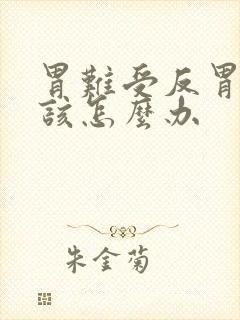 胃難受反胃
該怎麼办
朱金菊